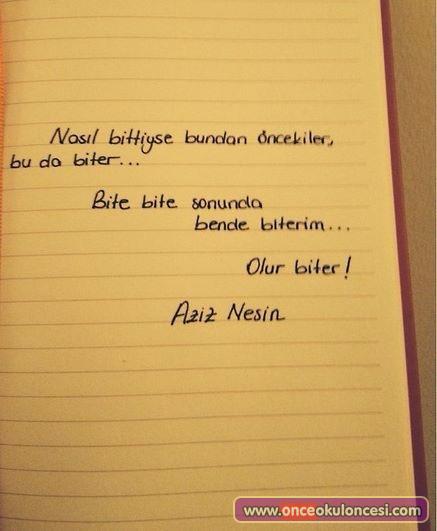 Nasıl bittiyse bundan öncekiler,
bu da biter...
Bite bite sonunda
bende biterim...
Olur biter!
Aziz Nesin
www.onceokuloncesi.com